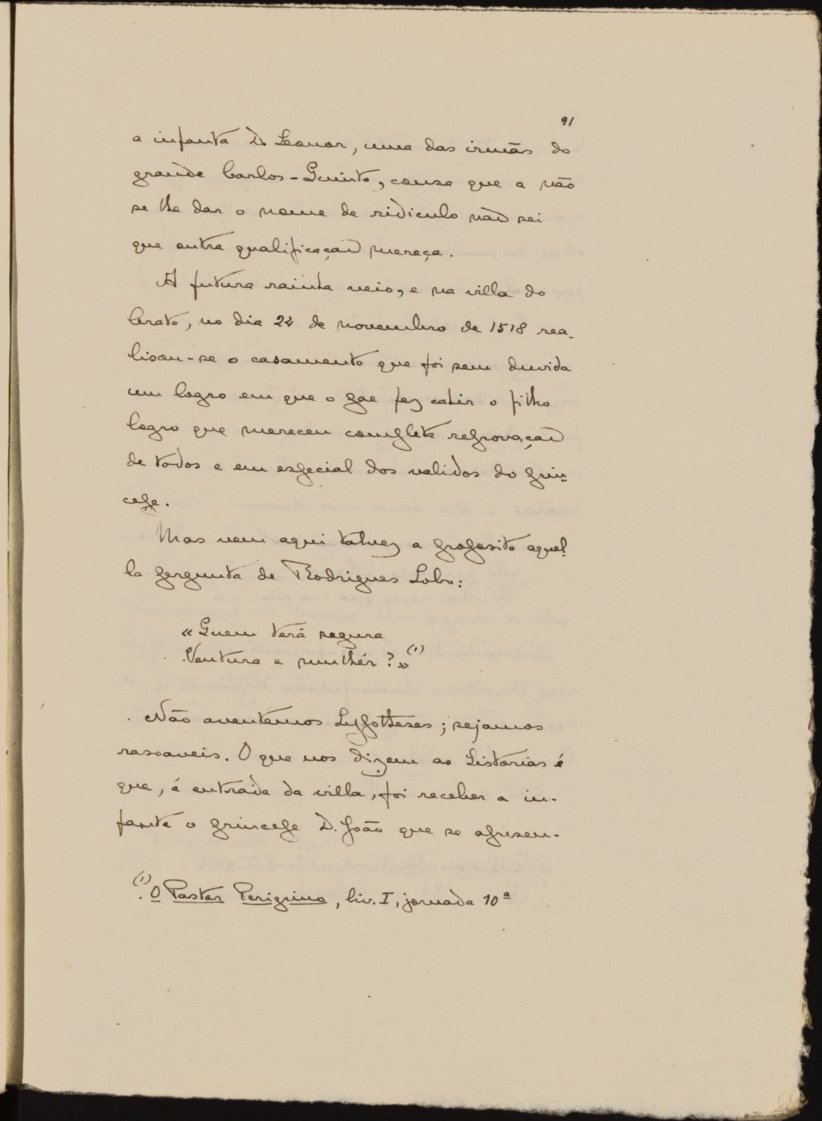 91
a infanta D. Leonor, uma das irmãs do
grande Carlos-Quinto, cousa que a não
se lhe dar o nome de ridiculo não sei
que outra qualificação mereça.
A futura rainha veio, e na villa do
Crato, no dia 24 de novembro de 1518 rea-
lisou-se o casamento que foi sem duvida
um logro em que o pae fez cahir o filho
logro que mereceu completa reprovação
de todos e em especial dos validos do prin-
cepe.
Mas vem aqui talvez a proposito aquel-
la pergunta de Rodrigues Lobo:
«Quem terá segura
Ventura e mulhér?»(1)
Não aventêmos hypotheses; sejamos
rasoaveis. O que nos dizem as historias é
que, á entrada da villa, foi receber a in-
fanta o princepe D. João que se apresen-
(1) O Pastor Perigrino, liv. I, jornada 10ª